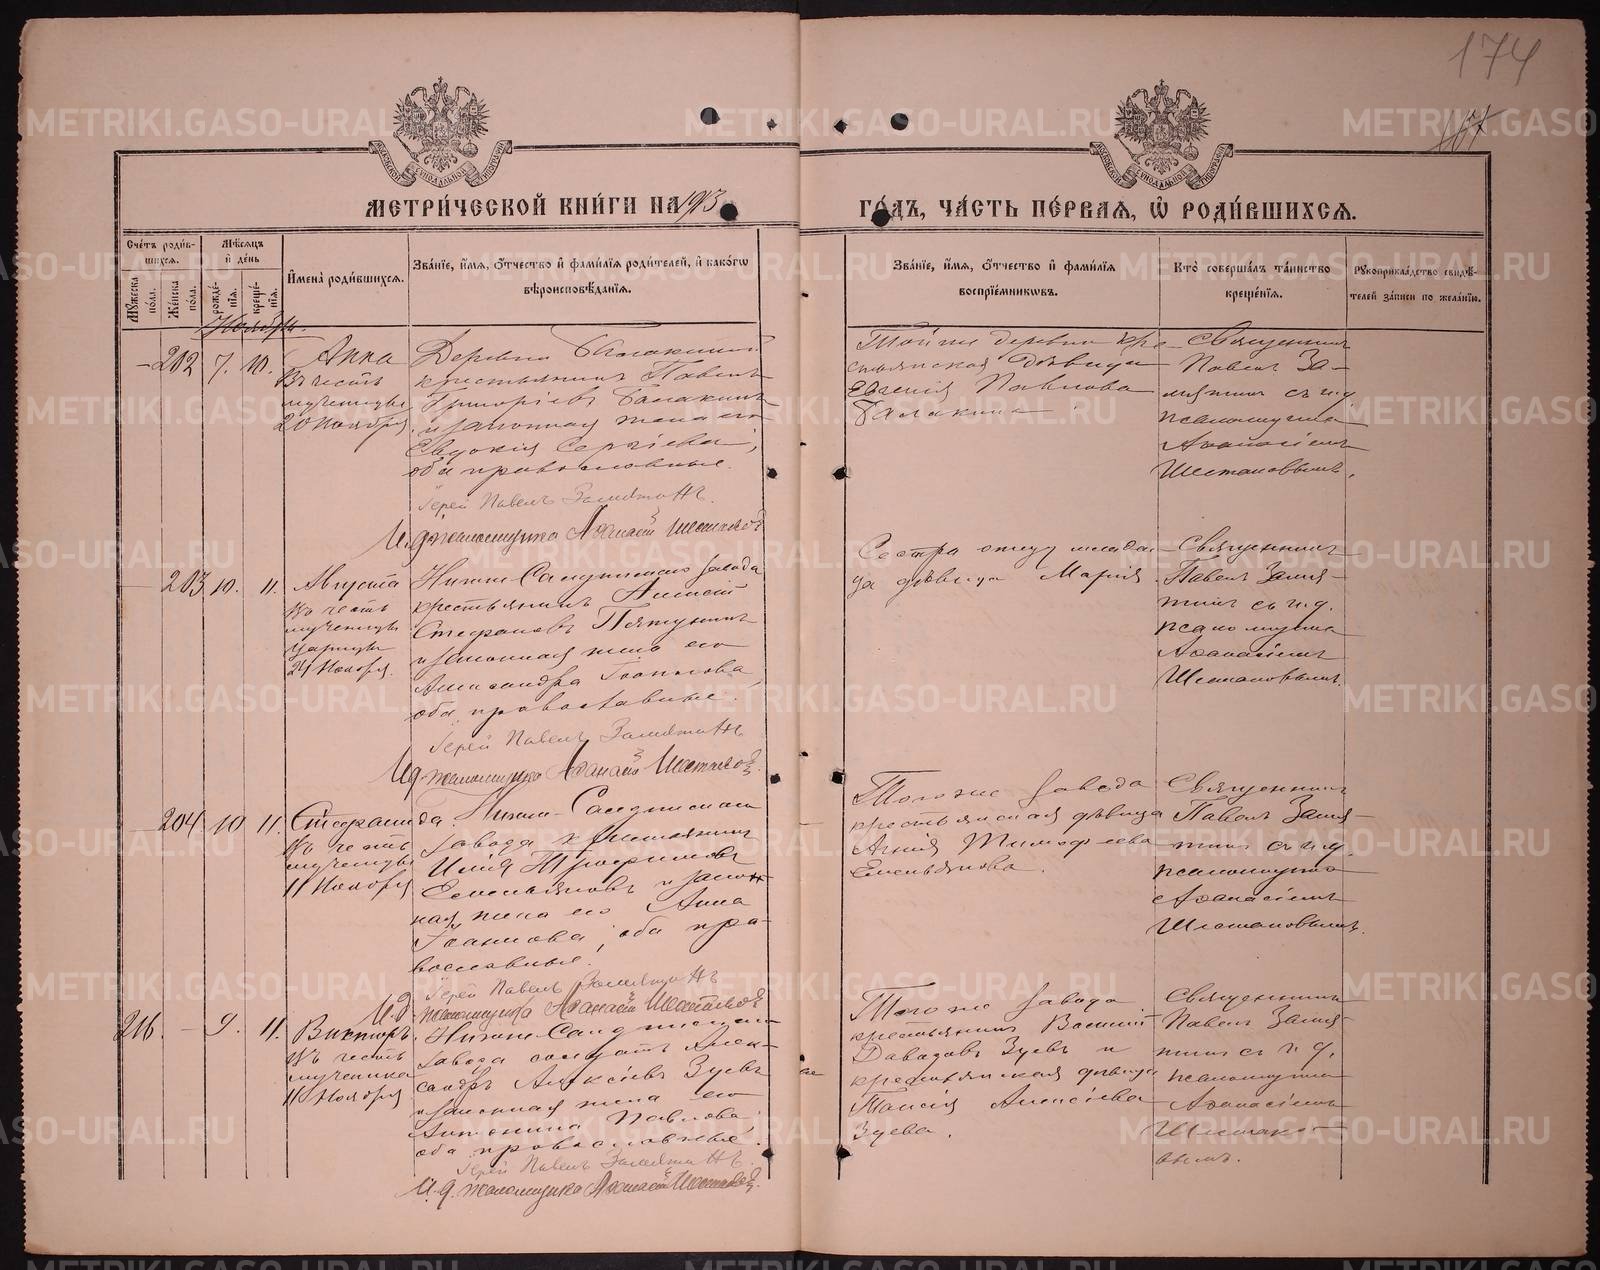 174
МЕТРИ́ЧЕСКОЙ КНИ́ГИ НА 1913 ГО́ДЪ, ЧА́СТЬ ПЕ́РВАЯ, Ѡ РОДИ́ВШИХСЯ.
Сче́тъ роди́вшихся.
Мꙋжеска по́ла.
Же́нска по́ла.
Мѣ́сяцъ и́ де́нь
рожде́нїя.
креще́нїя.
И́мена̀ роди́вшихся.
Зва́нїе, и́мя, ѻ́тчество и́ фами́лїя роди́телей, и́ како́гѡ
вѣроисповѣ́данїя.
Зва́нїе, и́мя, ѻ́тчество и́ фами́лїя
воспрїе́мникѡвъ.
Кто̀ соверша́лъ та́инство
креще́нїя.
Рꙋкоприкла́дство свидѣ́-
телей за́писи по жела́нїю.
Ноябрь.
202 7. 10.
Анна
Въ честь
мученицы
20 Ноября
Деревни Балакиной
крестьянинъ Павелъ
Григорієвъ Балакинъ
и законная жена его
Евдокія Сергіева,
оба православные.
Іерей Павелъ Замятинъ.
И. д. псаломщика Афанасій Шестаковъ
Той же деревни кре-
стьянская дѣвица
Евгенія Павлова
Балакина
Священникъ
Павелъ За-
мятинъ съ и. д.
псаломщика
Афанасіемъ
Шестаковымъ.
203 10. 11.
Августа
Въ честь
мученицы
царицы
24 Ноября.
Нижне-Салдинскаго завода
крестьянинъ Алексѣй
Стефановъ
и законная жена его
Александра Іоаннова,
оба православные.
Іерей Павелъ Замятинъ
И. д. псаломщика Афанасій Шестаковъ
Сестра отцу младен-
ца дѣвица Марія
Священникъ
Павелъ Замя-
тинъ съ и. д.
псаломщика
Афанасіемъ
Шестаковымъ.
204. 10 11.
Стефанида.
Въ честь
мученицы
11 Ноября
Нижне-Салдинскаго
завода крестьянинъ
Илія Трофимовъ
Емельяновъ и закон-
ная жена его Анна
Іоаннова, оба пра-
вославные.
Іерей Павелъ Замятинъ
И. д. псаломщика Афанасій Шестаковъ
Того же завода
крестьянская дѣвица
Агнія Тимофеева
Емельянова.
Священникъ
Павелъ Замя-
тинъ съ и. д.
псаломщика
Афанасіемъ
Шестаковымъ.
216. 9. 11.
Викторъ.
Въ честь
мученика
11 Ноября
Нижне-Салдинскаго
завода солдатъ Алек-
сандръ Алексіевъ Зуевъ
и законная жена его
Антонина Павлова,
оба православные.
Іерей Павелъ Замятинъ.
И. д. псаломщика Афанасій Шестаковъ.
Того же завода
крестьянинъ Василій
Давидовъ Зуевъ и
крестьянская дѣвица
Таисія Алексіева
Зуева.
Священникъ
Павелъ Замя-
тинъ съ и. д.
псаломщика
Афанасіемъ
Шестако-
вымъ.
METRIKI.GASO-URAL.RU